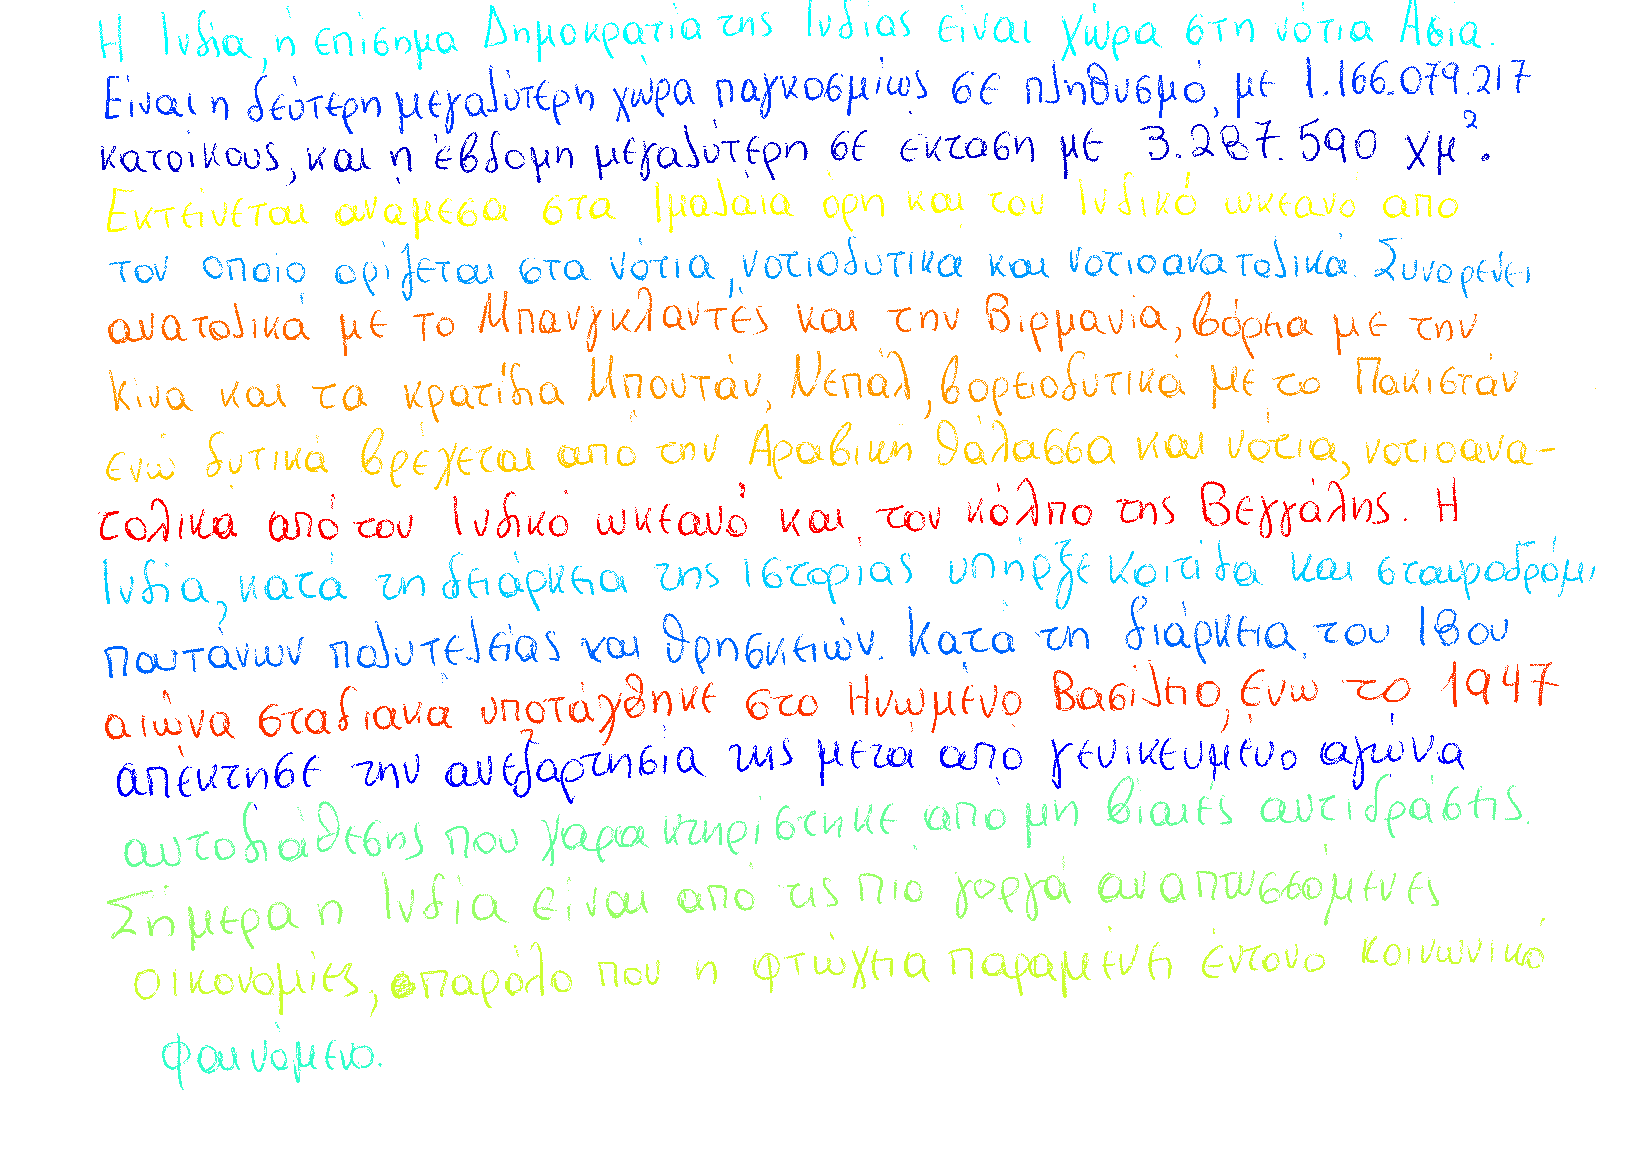 Η Ινδία, ή επίσημα Δημοκρατία της Ινδίας είναι χώρα στη νότια Ασία.
Είναι η δεύτερη μεγαλύτερη χώρα παγκοσμίως σε πληθυσμό, με 1.166.079.217
κατοίκους, και η έβδομη μεγαλύτερη σε έκταση με 3.287.590 χμ².
Εκτείνεται ανάμεσα στα Ιμαλαία όρη και τον Ινδικό ωκεανό από
τον οποίο ορίζεται στα νότια, νοτιοδυτικά και νοτιοανατολικά. Συνορεύει
ανατολικά με το Μπανγκλαντές και την Βιρμανία, βόρεια με την
Κίνα και τα κρατίδια Μπουτάν, Νεπάλ, βορειοδυτικά με το Πακιστάν
ενώ δυτικά βρέχεται από την Αραβική θάλασσα και νότια, νοτιοανα-
τολικά από τον Ινδικό ωκεανό και τον κόλπο της Βεγγάλης. Η
Ινδία, κατά τη δειάρκεια της ιστορίας υπήρξε κοιτίδα και σταυροδρόμι
παντάνων πολυτελείας και θρησκειών. Κατά τη διάρκεια του 18ου
αιώνα σταδιακά υποτάχθηκε στο Ηνωμένο Βασίλειο, ενώ το 1947
απέκτησε την ανεξαρτησία της μετά από γενικευμένο αγώνα
αυτοδιάθεσης που χαρακτηρίστηκε από μη βίαιες αντιδράσεις.
Σήμερα η Ινδία είναι από τις πιο γοργά αναπτυσσόμενες
οικονομίες, παρόλο που η φτώχεια παραμένει έντονο κοινωνικό
φαινόμενο.